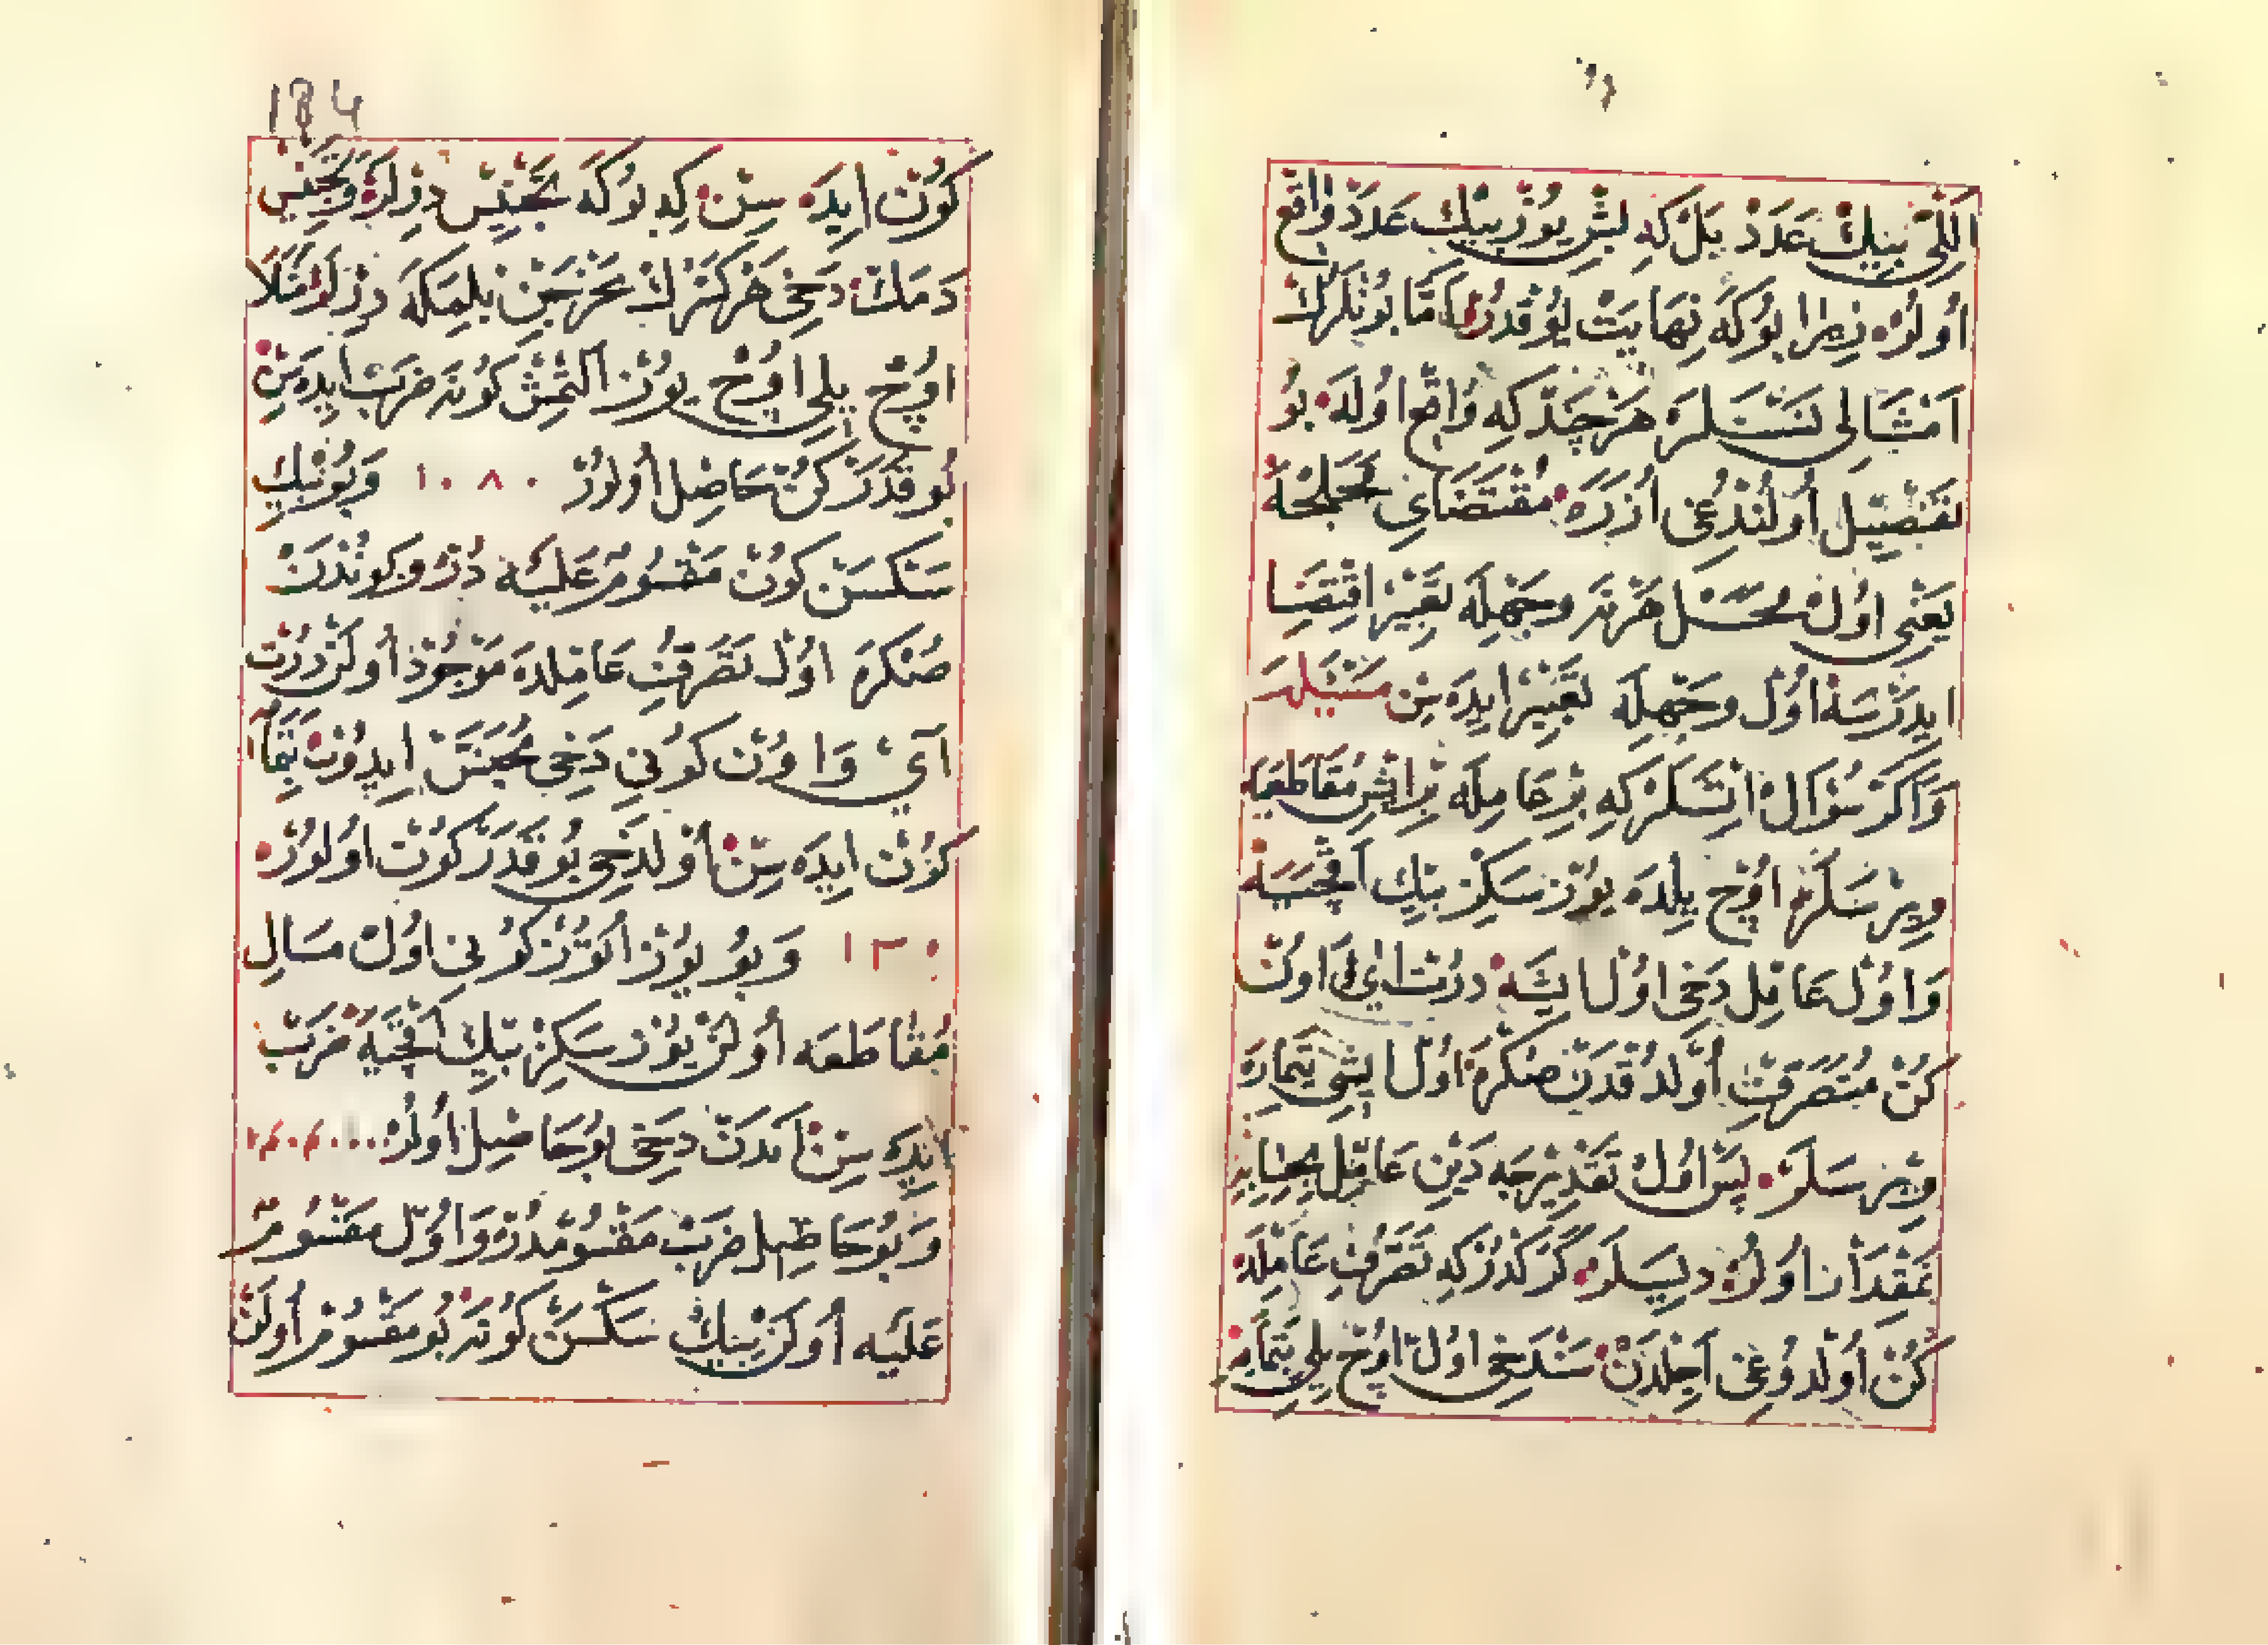 اَللِّى بِيكْ عَدَدْ بَلْ كِهِ بَشْ يُوزْ بِيكْ عَدَدْ وَاقِعْ
اُولُورْ زِيرَا بُوكَه نِهَايَتْ يُوقْدُرْ اَمَّا بُونْلَرُكْ
اَمْثَالِى نَسْنَلَرَه هَرْ چَنْدْ كِه وَاقِعْ اُولَه بُو
تَفْصِيلْ اُولُنْدُغِى اُزَرَه مُقْتَضَاىِ
يَعْنِى اُولْ مَحَلْ هَرْ نَه وَجْهِلَه تَعْبِيرْ اِقْتِضَا
اِيدَرْسَه اُولْ وَجْهِلَه تَعْبِيرْ اِيدَه سِنْ مَسْئَلَه
وَاَكَرْ سُؤَالْ اِتْسَلَرْ كِه بِرْ عَامِلَه بِرْ اِيشِ مُقَاطَعَه
وِيرْسَلَرْ اُوچْ يِلْدَه يُوزْ سَكِزْ بِيكْ اَقْچَيَه
وَاُولْ عَامِلْ دَخِى اُولْ اِيشَه دُرْتْ اَىْ اُونْ
كُنْ مُتَصَرِّفْ اُولْدُقْدَنْ صُكْرَه اُولْ اِيشِى تِيمَارَه
وِيرْسَلَرْ پَسْ اُولْ تَقْدِيرْجَه دَيْنِ عَامِلْ
مِقْدَارْ اُولُورْ دِيسَلَرْ كَرَكْدُرْ كِه تَصَرُّفِ عَامِلْدَه
كُنْ اُولْدُوغِى اَجِلْدَنْ سَنْكَخِى اُولْ اُوچْ يِلِى تَمَامْ
كُونْ اِيدَه سِنْ كِه بُوكَه تَجْنِيسْ دِرْلَرْ وَتَجْنِيسْ
دَمَكْ دَخِى هَرْ كَسْرُكْ مَخْرَجِنْ بِلْمَكَه دِرْلَرْ مَثَلَا
اُوچْ يِلِى اُوچْ يُوزْ اَلْتْمِشْ كُونَه ضَرَبْ اِيدَه سِنْ
بُو قَدَرْ كُنْ حَاصِلْ اُولُورْ ١٠٨٠ وَبُو بِيكْ
سَكْسَنْ كُونْ مَقْسُومٌ عَلَيْه دُرْ وَبُونْدَنْ
صُكْرَه اُولْ تَصَرُّفِ عَامِلْدَه مَوْجُودْ اُولَنْ دُرْتْ
آىْ وَاُونْ كُونِى دَخِى مُجَنَّسْ اِيدُوبْ تَمَامْ
كُونْ اِيدَه سِنْ اُولْدَخِى بُو قَدَرْ كُونْ اُولُورْ
١٣٠ وَبُو يُوزْ اُوتُوزْ كُونِى اُولْ مَالِ
مُقَاطَعَه اُولَنْ يُوزْ سَكِزْ بِيكْ اَقْچَيَه ضَرَبْ
اِيدَه سِنْ اَنْدَنْ دَخِى بُو حَاصِلْ اُولُورْ ١٤٠٤٠٠٠٠
وَبُو حَاصِلِ ضَرَبْ مَقْسُومْدُرْ وَاُولْ مَقْسُومٌ
عَلَيْه اُولَنْ بِيكْ سَكْسَنْ كُونَه بُو مَقْسُومْ اُولَنْ